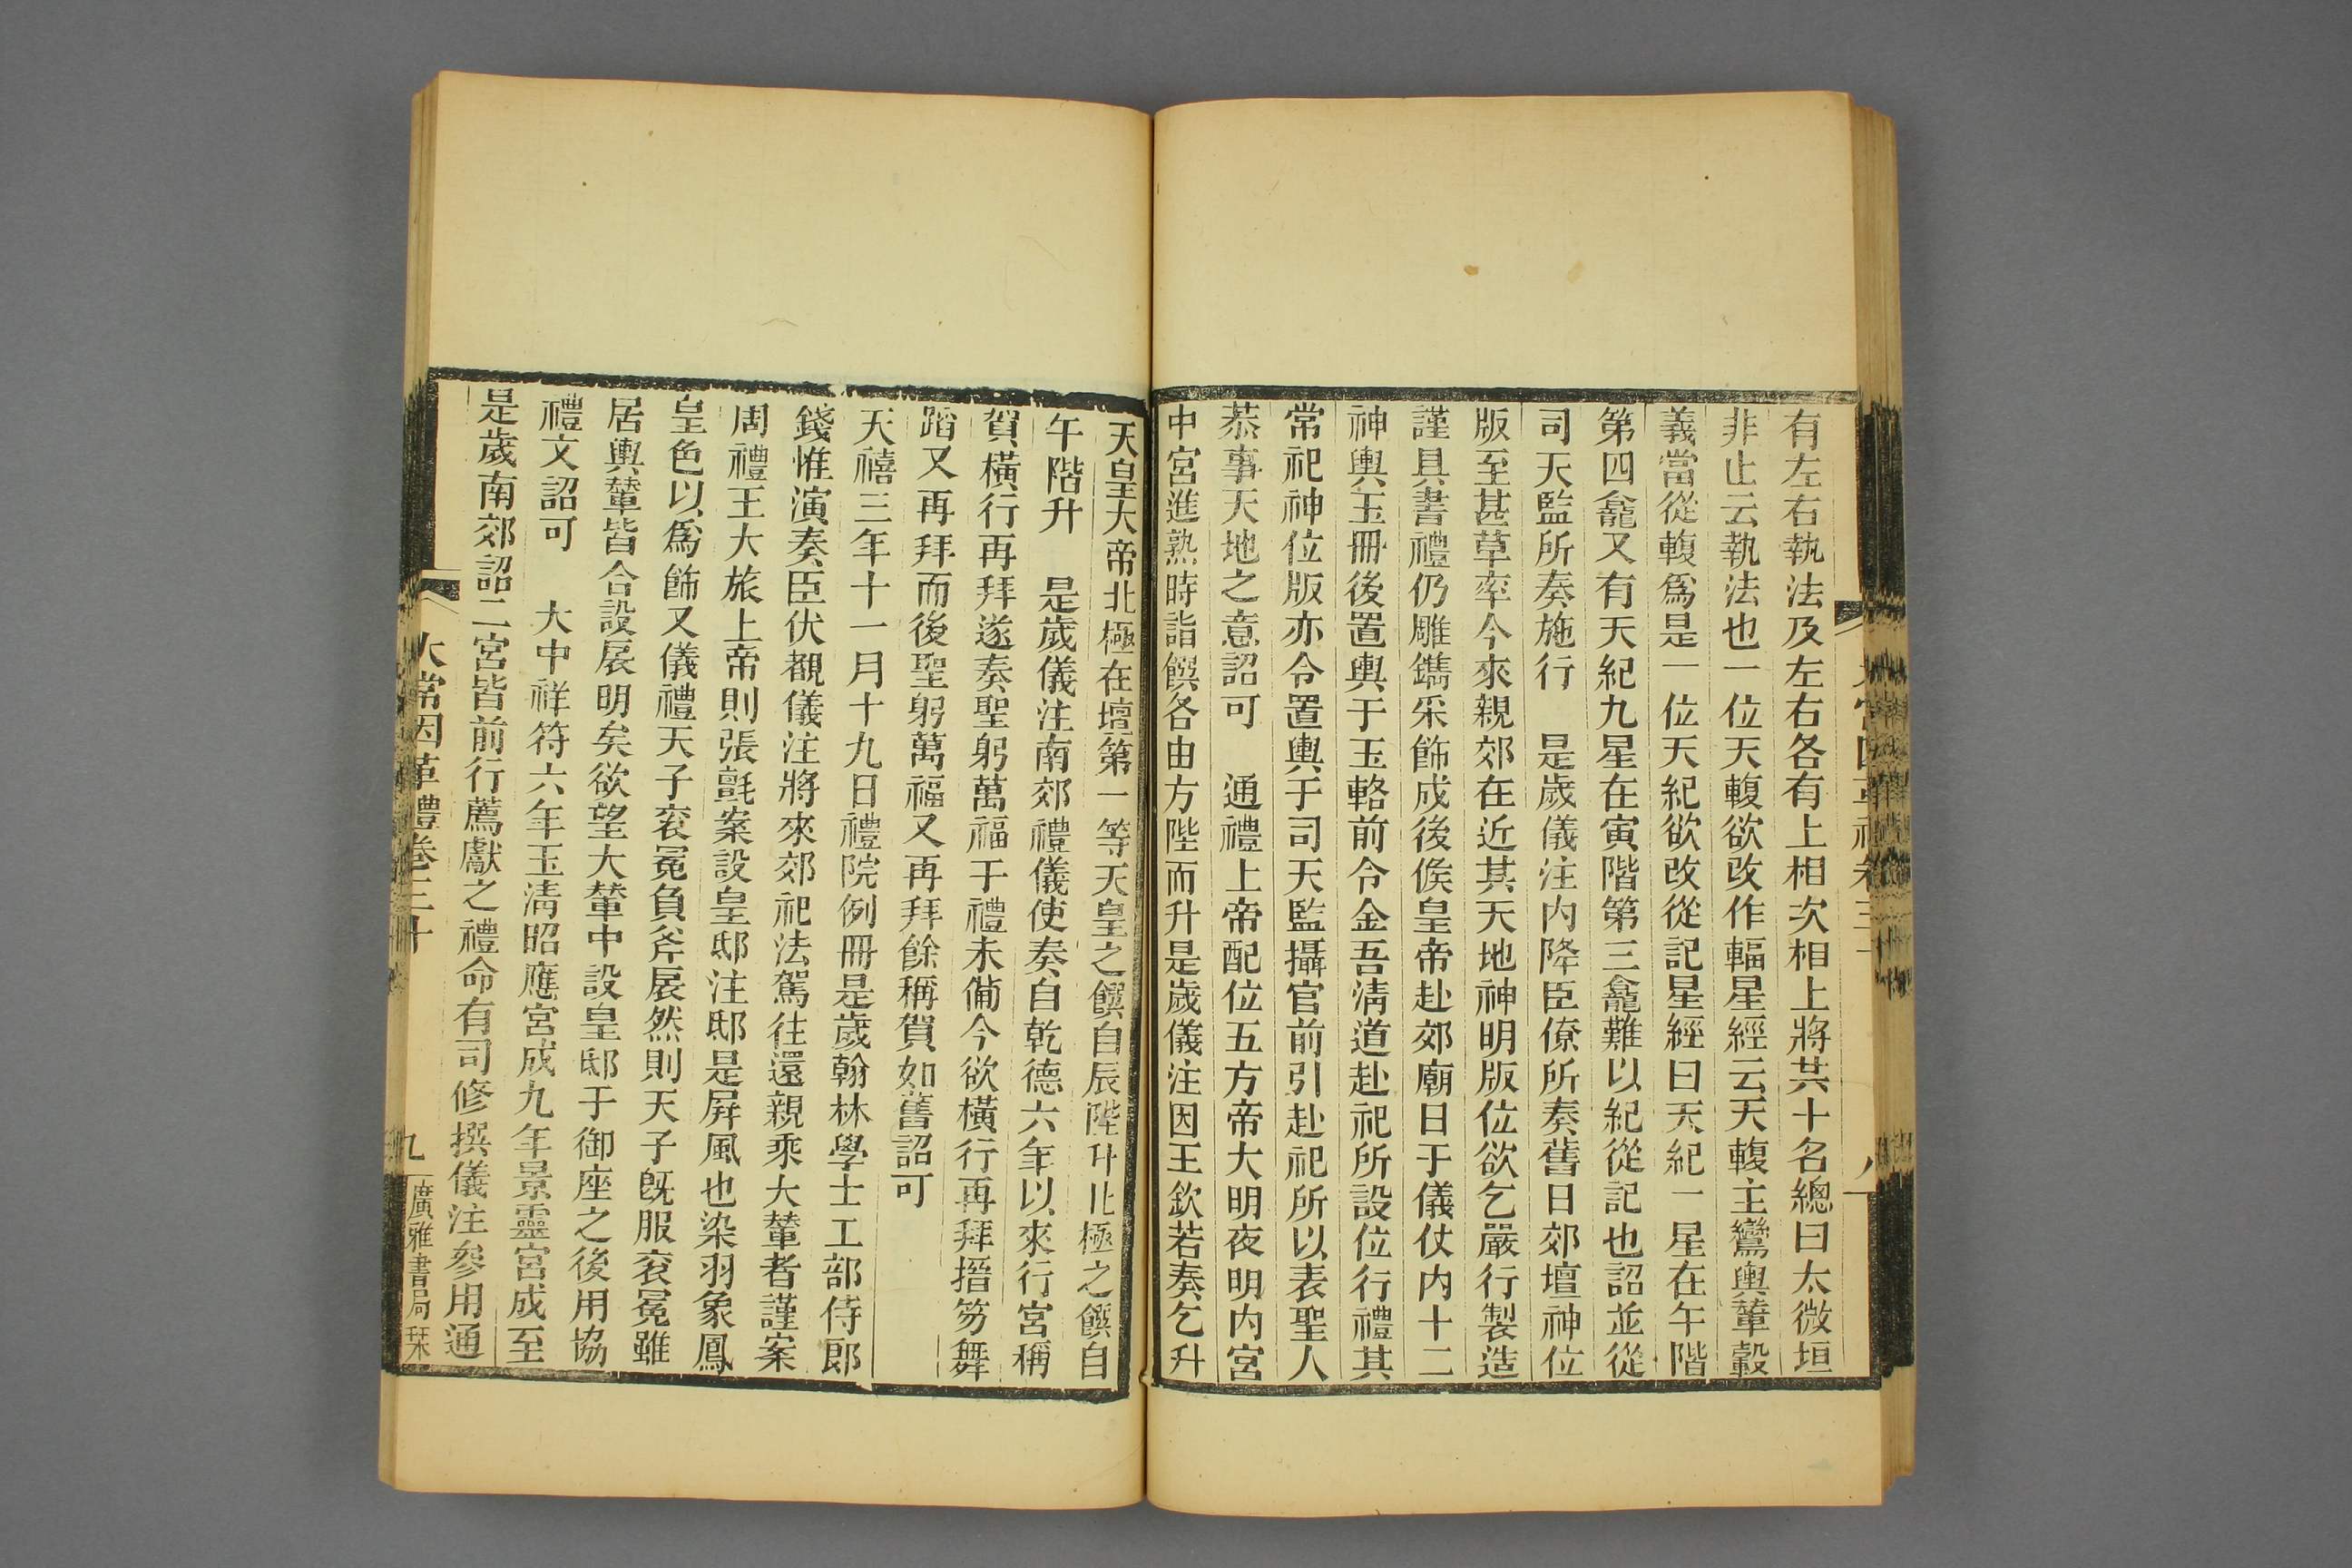 有左右執法及左右各有上相次相上將共十名總曰太微垣
非止云執法也一位天輹欲改作輻星經云天輹主鸞輿輦轂
義當從輹爲是一位天紀欲改從記星經曰天紀一星在午階
第四龕又有天紀九星在寅階第三龕難以紀從記也詔並從
司天監所奏施行　是歲儀注內降臣僚所奏舊日郊壇神位
版至甚草率今來親郊在近其天地神明版位欲乞嚴行製造
謹具書禮仍雕鐫采飾成後俟皇帝赴郊廟日于儀仗內十二
神輿玉冊後置輿于玉輅前令金吾淸道赴祀所設位行禮其
常祀神位版亦令置輿于司天監攝官前引赴祀所以表聖人
恭事天地之意詔可　通禮上帝配位五方帝大明夜明內宮
中宮進熟時詣饌各由方陛而升是歲儀注因王欽若奏乞升
天皇大帝北極在壇第一等天皇之饌自辰陛升北極之饌自
午階升　是歲儀注南郊禮儀使奏自乾德六年以來行宮稱
賀橫行再拜遂奏聖躬萬福于禮未備今欲橫行再拜搢笏舞
蹈又再拜而後聖躬萬福又再拜餘稱賀如舊詔可
天禧三年十一月十九日禮院例冊是歲翰林學士工部侍郎
錢惟演奏臣伏覩儀注將來郊祀法駕往還親乘大輦者謹案
周禮王大旅上帝則張氈案設皇邸注邸是屏風也染羽象鳳
皇色以爲飾又儀禮天子袞冕負斧扆然則天子旣服袞冕雖
居輿輦皆合設扆明矣欲望大輦中設皇邸于御座之後用協
禮文詔可　大中祥符六年玉淸昭應宮成九年景靈宮成至
是歲南郊詔二宮皆前行薦獻之禮命有司修撰儀注參用通
太常因革禮卷三十　九　廣雅書局栞